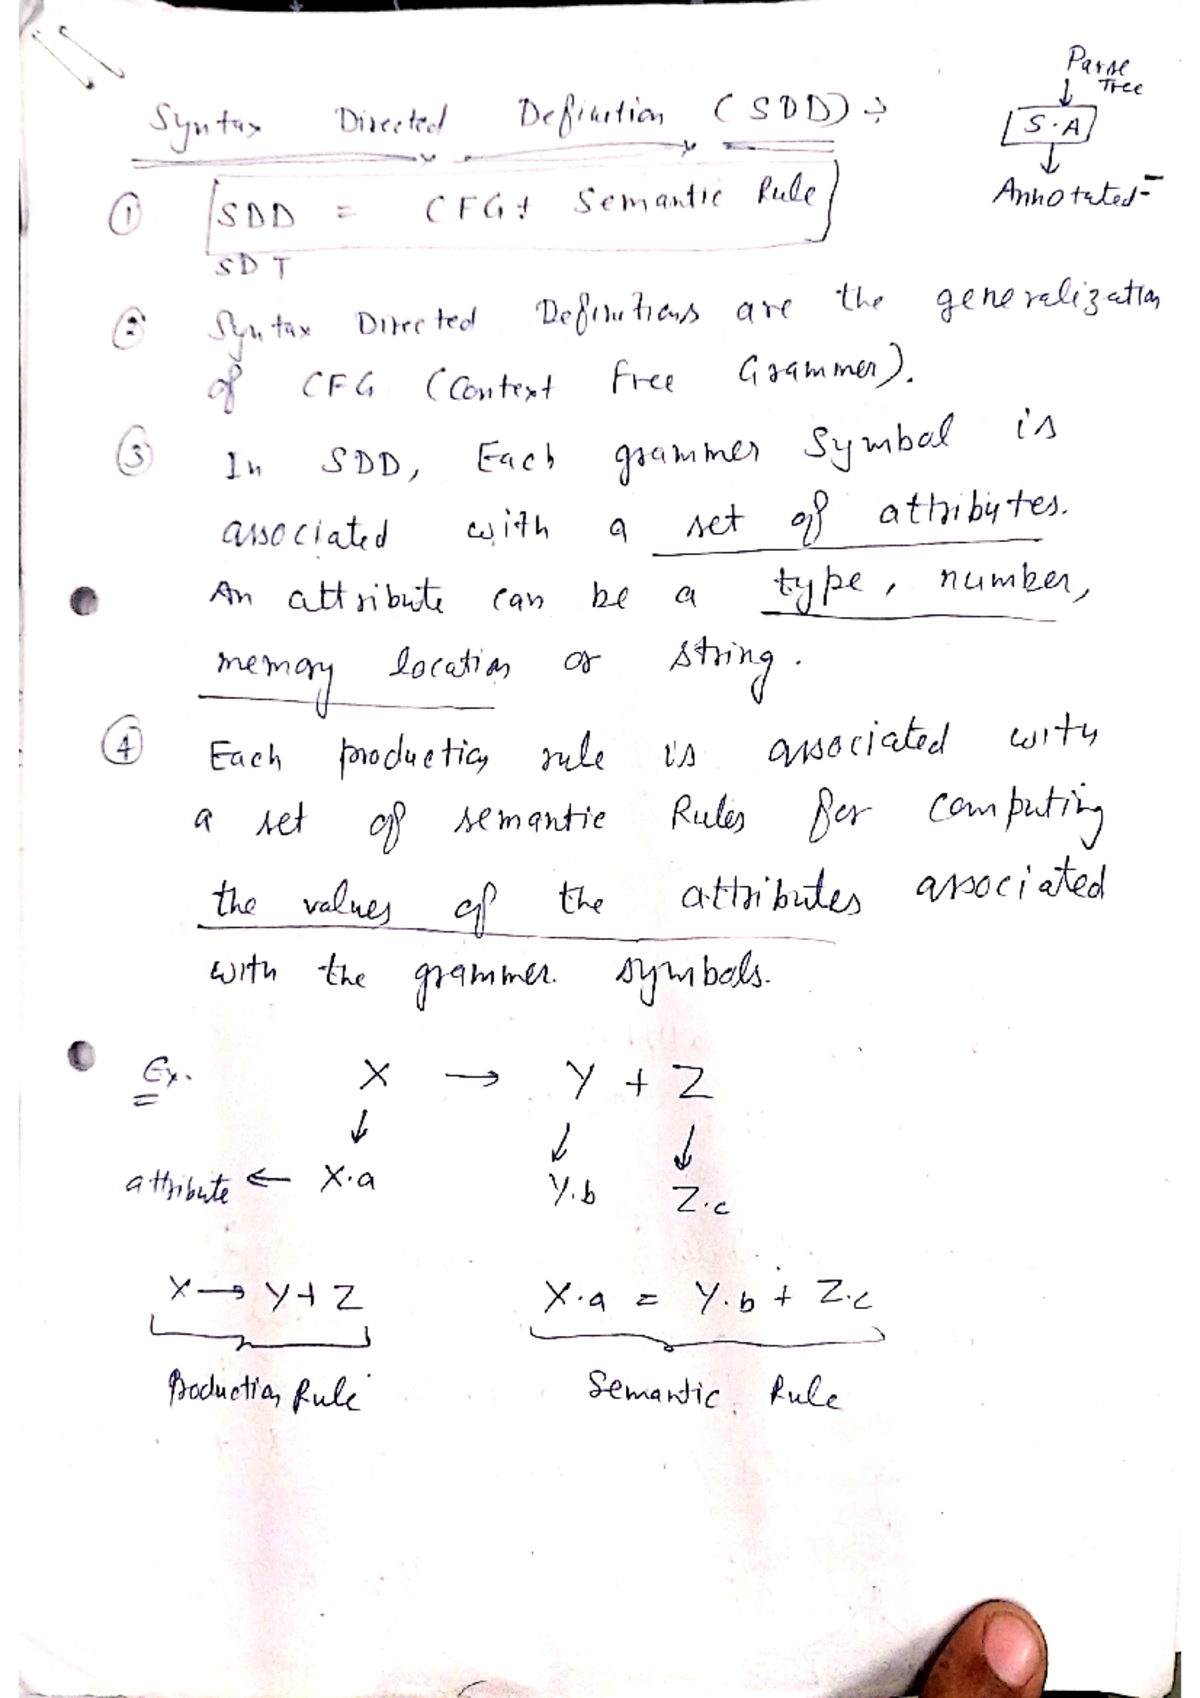 Parse
Tree
S.A
Annotated-
Syntax Directed Definition (SDD) :-
① SDD = CFG + Semantic Rule
SDT
② Syntax Directed Definitions are the generalization
of CFG (Context Free Grammer).
③ In SDD, Each grammer Symbol is
associated with a set of attributes.
An attribute can be a type, number,
memory location or string.
④ Each production rule is associated with
a set of semantic Rules for computing
the values of the attributes associated
with the grammer symbols.
Ex. X → Y + Z
↓ ↓ ↓
attribute ← X.a Y.b Z.c
X → Y + Z X.a = Y.b + Z.c
Production Rule Semantic Rule